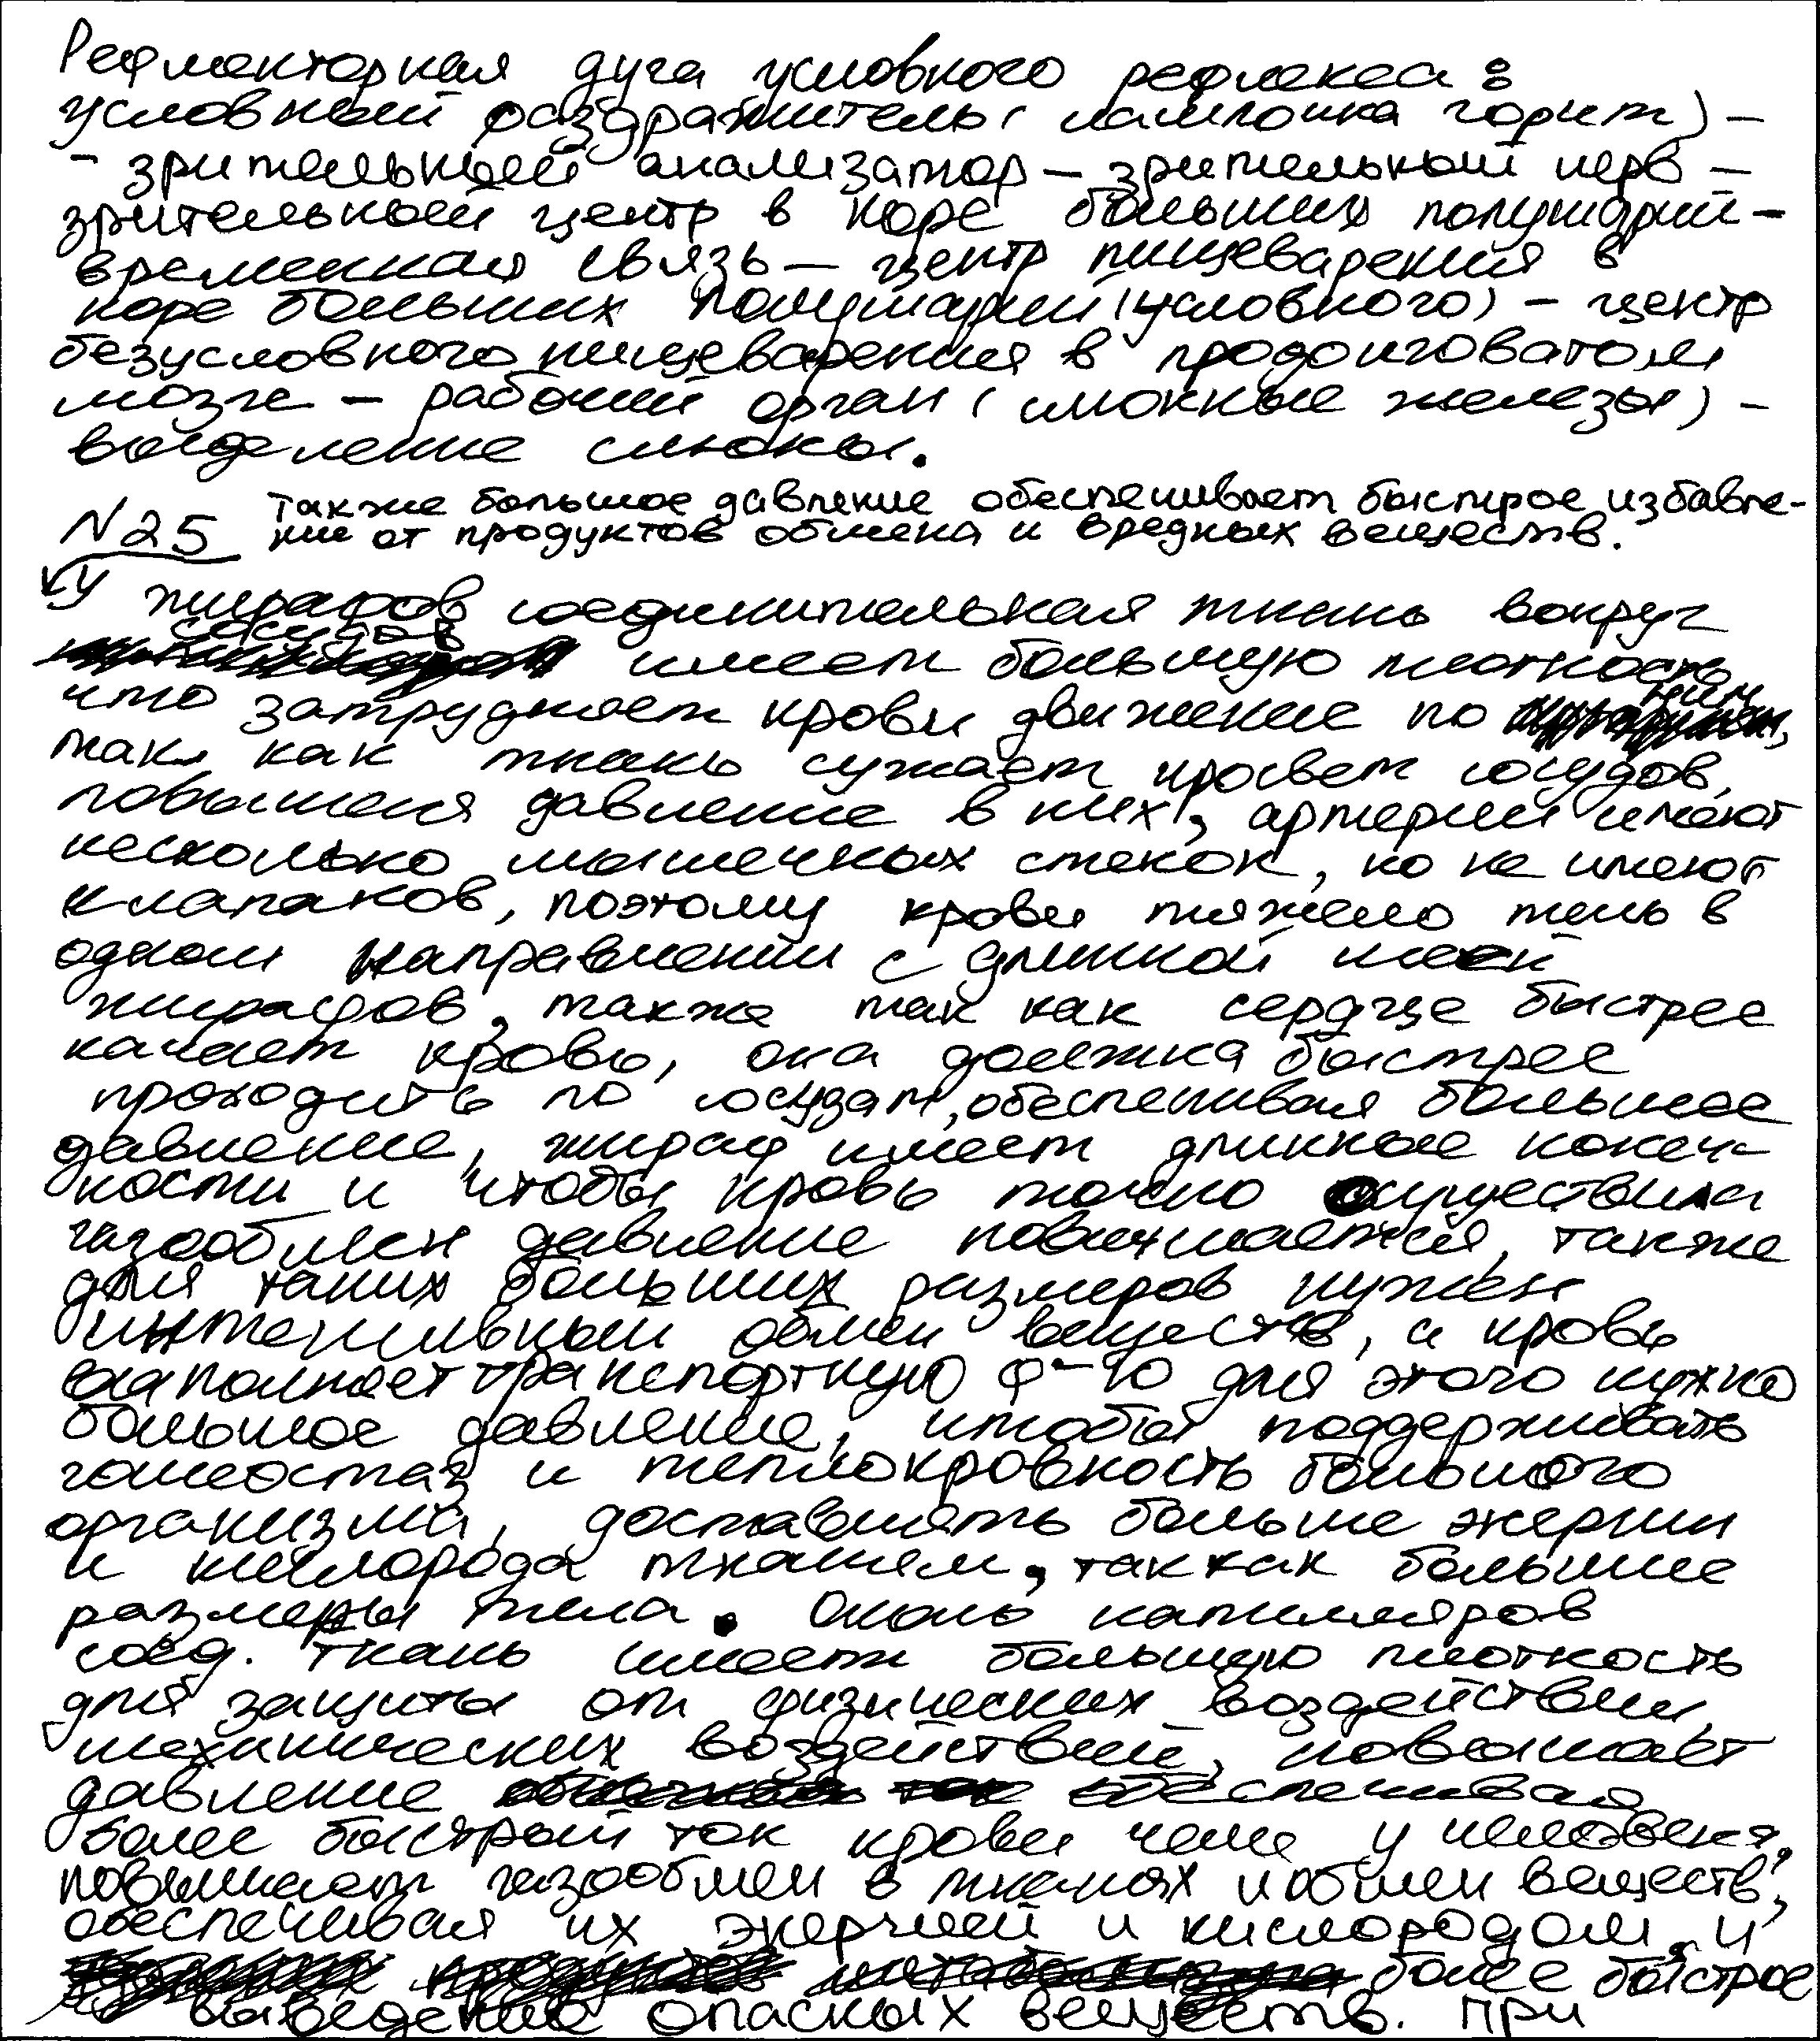 Рефлекторная дуга условного рефлекса:
условный раздражитель (лампочка горит) –
– зрительный анализатор – зрительный нерв –
зрительный центр в коре больших полушарий –
временная связь – центр пищеварения в
коре больших полушарий (условного) – центр
безусловного пищеварения в продолговатом
мозге – рабочий орган (слюнные железы) –
выделение слюны.
также большое давление обеспечивает быстрое избавле-
N25 ние от продуктов обмена и вредных веществ.
У жирафов соединительная ткань вокруг
сосудов имеет большую плотность
что затрудняет крови движение по ним,
так как ткань сужает просвет сосудов,
повышая давление в них, артерии имеют
несколько мышечных стенок, но не имеют
клапанов, поэтому крови тяжело течь в
одном направлении с длинной шеей
жирафов, также так как сердце быстрее
качает кровь, она должна быстрее
проходить по сосудам, обеспечивая большое
давление, жираф имеет длинные конеч-
ности и чтобы кровь точно осуществила
газообмен давление повышается, также
для таких больших размеров нужен
интенсивный обмен веществ, а кровь
выполняет транспортную ф-ю для этого нужно
большое давление, чтобы поддерживать
гомеостаз и теплокровность большого
организма, доставлять больше энергии
и кислорода тканям, так как большие
размеры тела. Около капилляров
соед. ткань имеет большую плотность
для защиты от физических воздействий,
механических воздействий, повышает
давление обеспечивая
более быстрый ток крови чем у человека,
повышает газообмен в тканях и обмен веществ,
обеспечивая их энергией и кислородом и
более быстрое
выведение опасных веществ. При